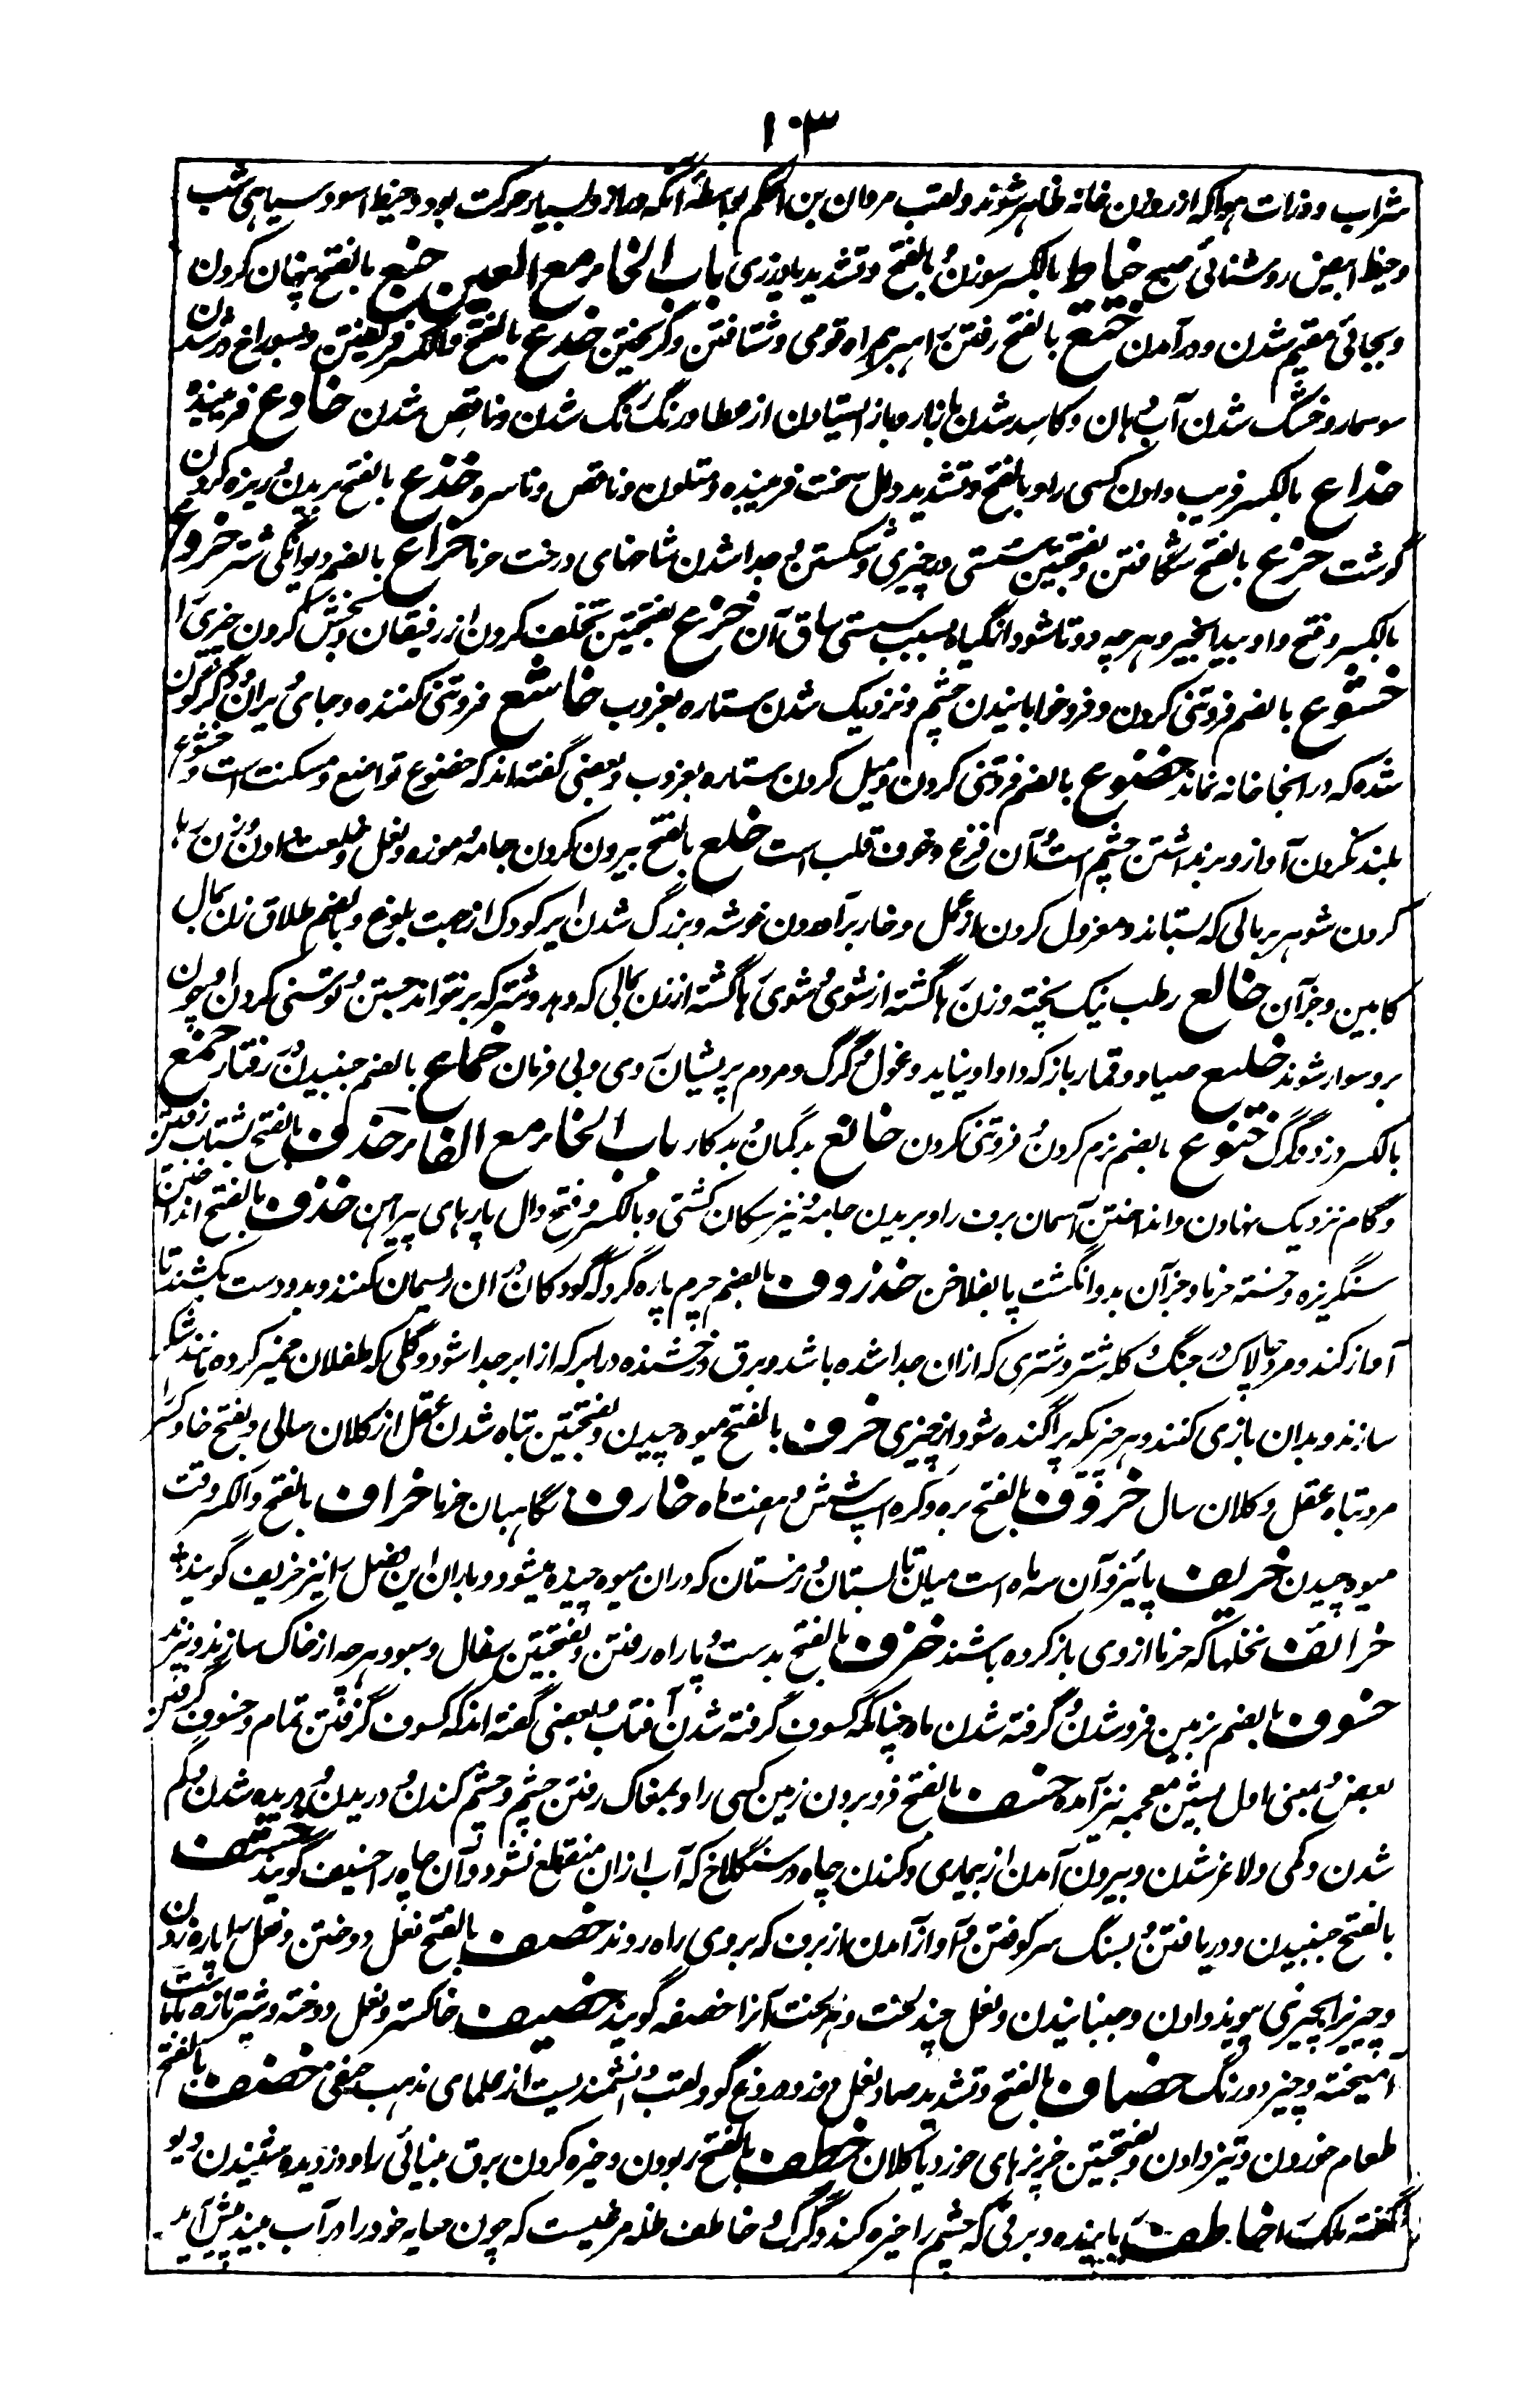 ۱۰۳
شراب و ذرات هوا که از روزن خانه ظاهر شوند و لقب مروان بن الحکم بواسطهٔ آنکه دراز و بسیار حرکت بود و خیط اسود سیاهی شب
و خیط ابیض روشنائی صبح خیاط بالکسر سوزن و بالفتح و تشدید یا درزی باب الخاء مع العین خبع بالفتح پنهان کردن
و بجائی مقیم شدن و درآمدن ختع بالفتح رفتن راهبر همراه قومی و شتافتن و گریختن خدع بالفتح و بالکسر فریفتن و بسوراخ در شدن
سوسمار و خشک شدن آب دهان و کاسد شدن بازار و باز ایستادن از عطا و رنگ رنگ شدن و ناقص شدن خادع فریبنده
خداع بالکسر فریب دادن کسی را و بالفتح و تشدید دال سخت فریبنده و متلون و ناقص و ناسره خذع بالفتح بریدن و ریزه کردن
گوشت خرع بالفتح شگافتن و بفتحتین سستی در چیزی و شکستن و جدا شدن شاخهای درخت خرما خراع بالضم دیوانگی شتر خروع
بالکسر و فتح واو بیدانجیر و هر چه دوتا شود از گیاه بسبب سستی ساق آن خزع بفتحتین تخلف کردن از رفیقان و بخش کردن چیزی را
خشوع بالضم فروتنی کردن و فرو خوابانیدن چشم و نزدیک شدن ستاره بغروب خاشع فروتنی کننده و جای ویران و دگرگون
شده که در انجا خانه نماند خضوع بالضم فروتنی کردن و میل کردن ستاره بغروب و بعضی گفته‌اند که خضوع تواضع و مسکنت است و خشوع
بلند نکردن آواز و برنداشتن چشم است و آن فزع و خوف قلب است خلع بالفتح بیرون کردن جامه و موزه و نعل و خلعت دادن و زن رها
کردن شوهر بر مالی که بستاند و معزول کردن از عمل و خار برآوردن خوشه و بزرگ شدن ایر کودک از جهت بلوغ و بالضم طلاق زن بمال
کابین و جز آن خالع رطب نیک پخته و زن رها گشته از شوی و شوی رها گشته از زن بمالی که دهد و شتر که برنتواند جستن و توسنی کردن او چون
برو سوار شوند خلیع صیاد و قمارباز که داو او نیاید و غول و گرگ و مردم پریشان روی و بی فرمان خماع بالضم جنبیدن در رفتار خمع
بالکسر دزد و گرگ خنوع بالضم نرم کردن و فروتنی کردن خانع بدگمان و بدکار باب الخاء مع الفاء خدف بالفتح بشتاب رفتن
و گام نزدیک نهادن و انداختن آسمان برف را و بریدن جامه و نیز سکان کشتی و بالکسر و فتح دال پارهای پیراهن خذف بالفتح انداختن
سنگریزه و خسته خرما و جز آن بدو انگشت یا بفلاخن خذروف بالضم چرم پاره گرد که کودکان در ان ریسمان کنند و بدو دست بکشند تا
آواز کند و مرد چالاک در جنگ و کله شتر و شتری که از ان جدا شده باشد و برق درخشنده در ابر که از ابر جدا شود و گلی که طفلان خمیر کرده مانند شکر
سازند و بدان بازی کنند و هر چیزیکه پراگنده شود از چیزی خرف بالفتح میوه چیدن و بفتحتین تباه شدن عقل از کلان سالی و بفتح خا و کسر را
مرد تباه عقل و کلان سال خروف بالفتح بره و کره اسپ شش و هفت ماه خارف نگاهبان خرما خراف بالفتح و الکسر وقت
میوه چیدن خریف پائیز و آن سه ماه است میان تابستان و زمستان که دران میوه چیده میشود و باران این فصل را نیز خریف گویند
خرائف نخلها که خرما از وی باز کرده باشند خزف بالفتح بدست و پا راه رفتن و بفتحتین سفال و سبو و هر چه از خاک سازند و پزند
خسوف بالضم بزمین فرو شدن و گرفته شدن ماه چنانکه کسوف گرفته شدن آفتاب و بعضی گفته اند که کسوف گرفتن تمام و خسوف گرفتن
بعض و بمعنی اول بشین معجمه نیز آمده خسف بالفتح فرو بردن زمین کسی را و بمغاک رفتن چشم و چشم کندن و دریدن و دریده شدن و کم
شدن و کمی و لاغر شدن و بیرون آمدن از بیماری و کندن چاه در سنگلاخ که آب ازان منقطع نشود و آن چاه را خسیف گویند خشف
بالفتح جنبیدن و دریافتن و بسنگ سر کوفتن و آواز آمدن از برف که بروی راه روند خصف بالفتح نعل دوختن و نعل را پاره زدن
و چیزی را بچیزی پیوند دادن و جنبانیدن و نعل چند لخت و هر لخت آنرا خصفه گویند خصیف خاکستر و نعل دوخته و شیر تازه با ماست
آمیخته و چیز دو رنگ خصاف بالفتح و تشدید صاد نعل دوز و دروغ گو و لقب دانشمندیست از علمای مذهب حنفی خضف بالفتح
طعام خوردن و تیز دادن و بفتحتین خربزهای خورد یا کلان خطف بالفتح ربودن و خیره کردن برق بینائی را و دزدیده شنیدن دیو
گفته ملک را خاطف رباینده و برقی که چشم را خیره کند و گرگ و خاطف ظله مرغیست که چون سایه خود را در آب بیند پیش آید